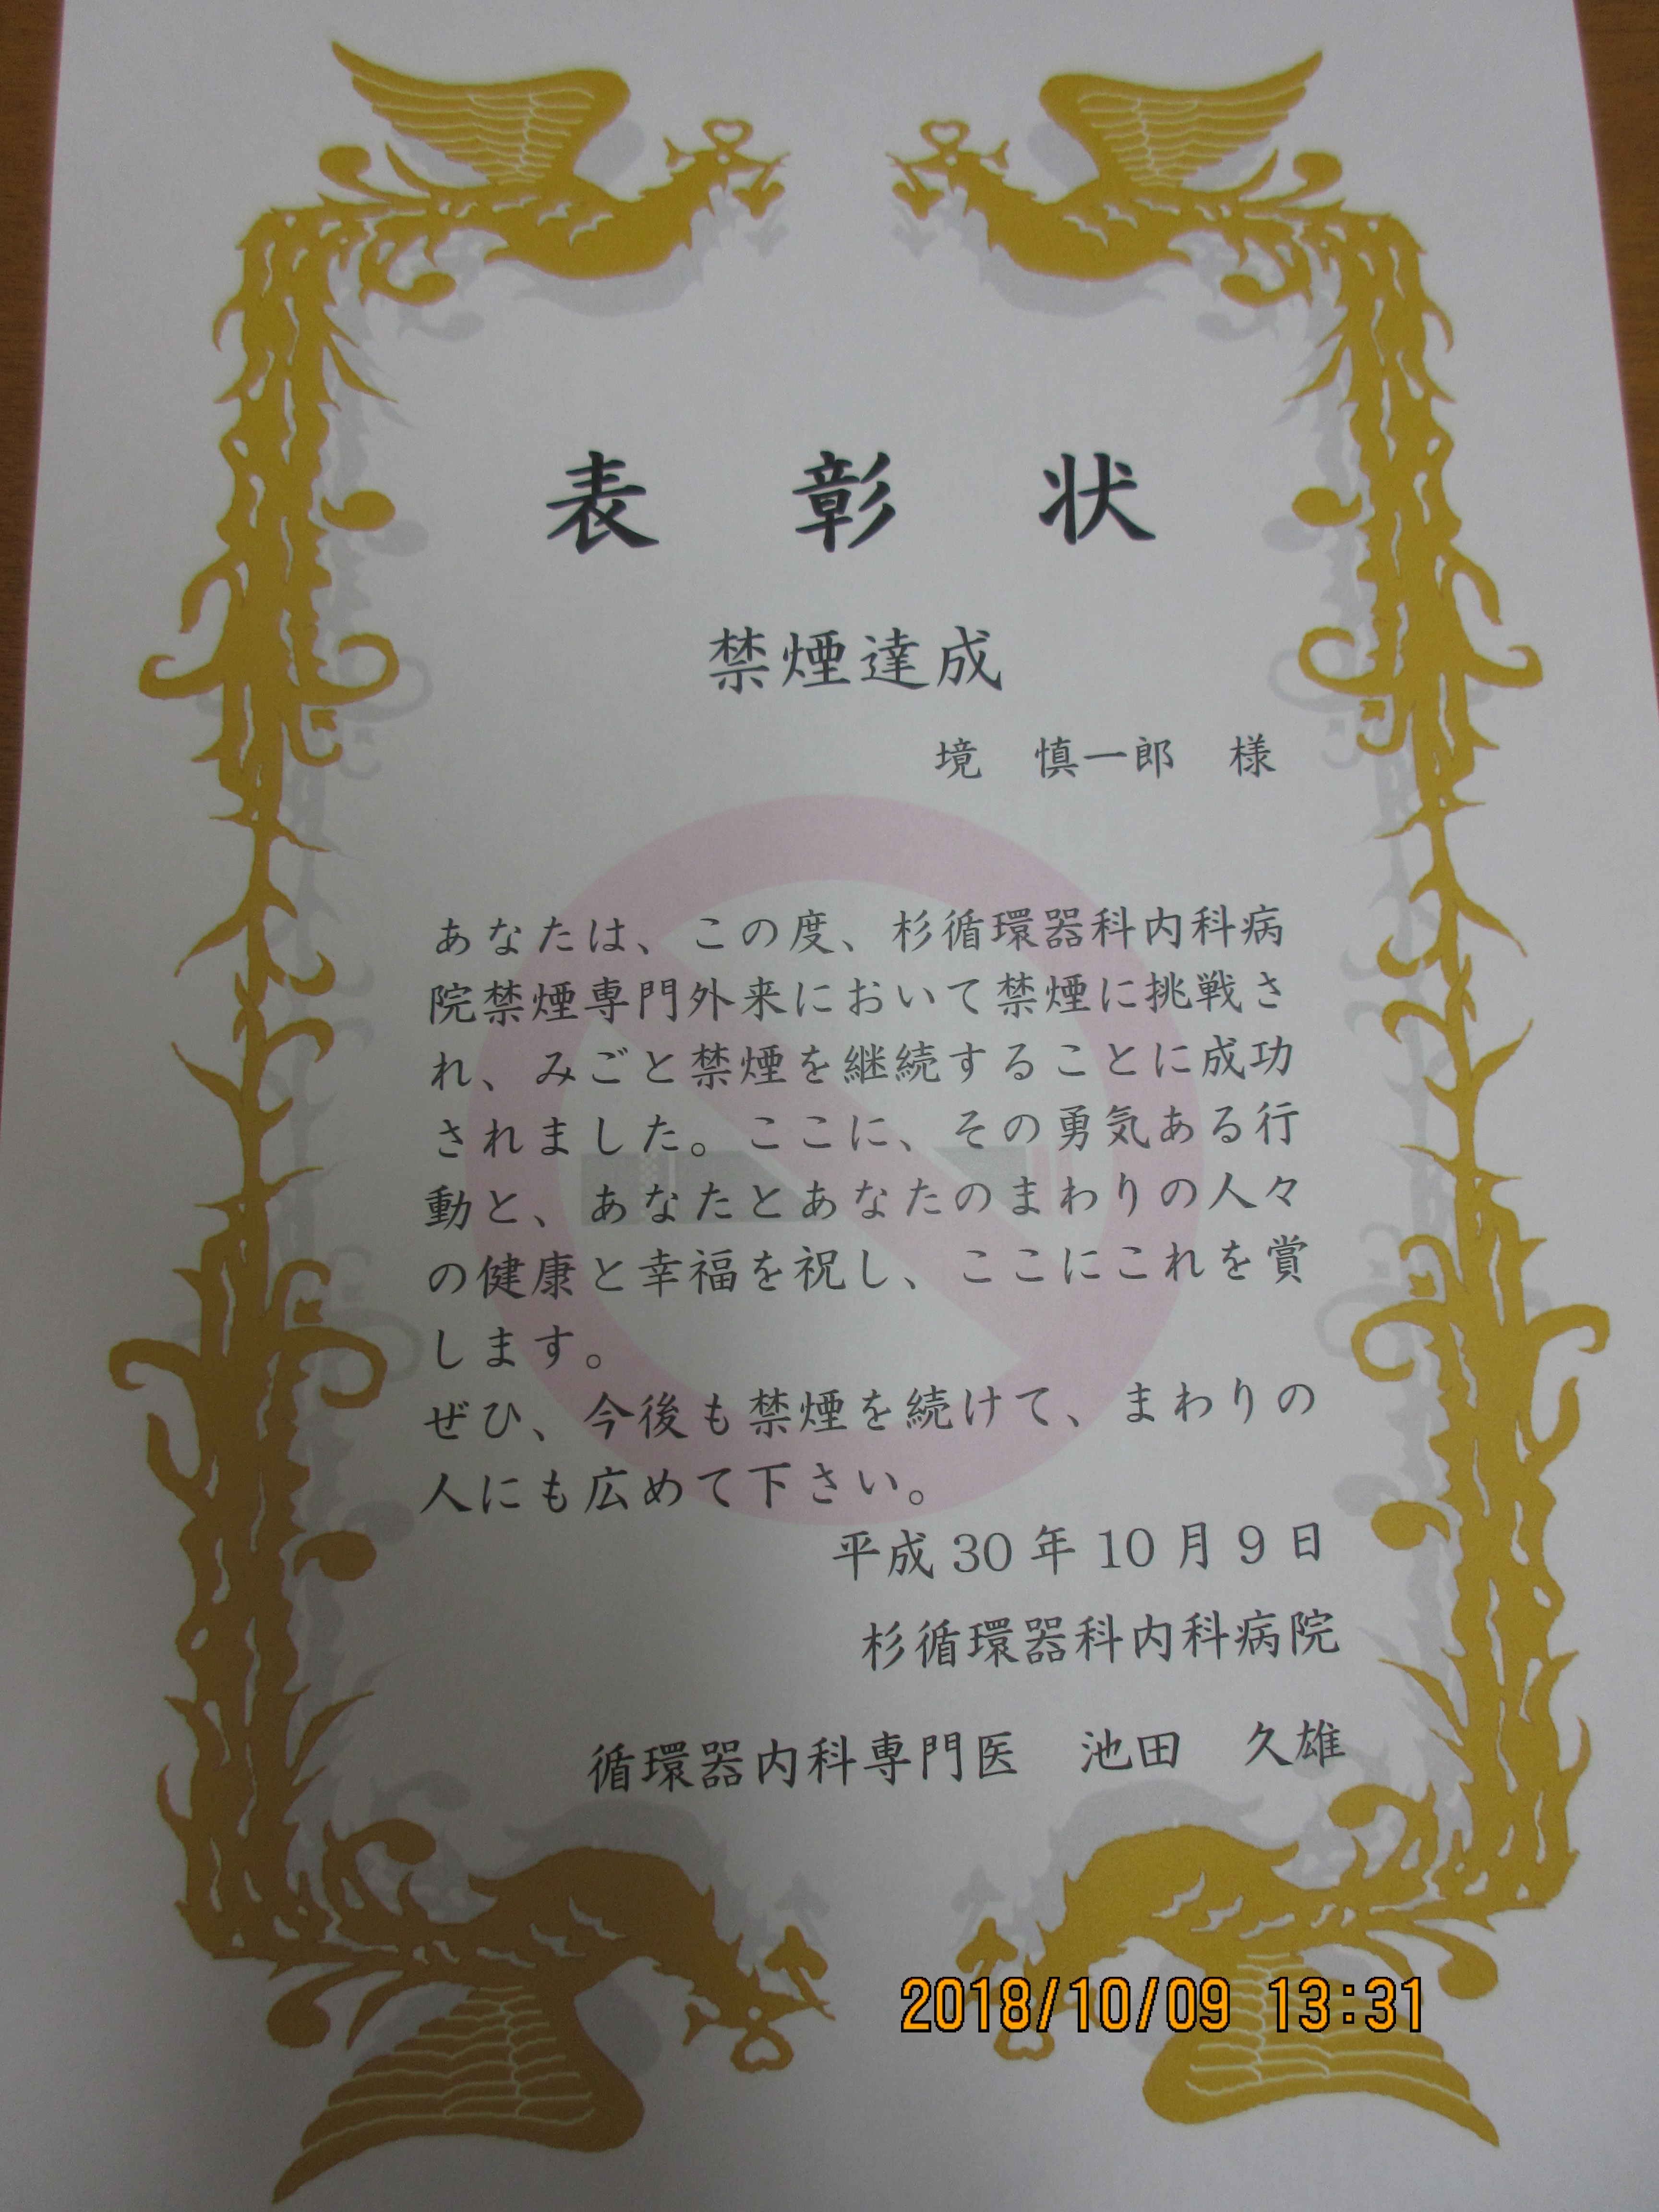 表 彰 状
禁煙達成
境　慎一郎　様
あなたは、この度、杉循環器科内科病
院禁煙専門外来において禁煙に挑戦さ
れ、みごと禁煙を継続することに成功
されました。ここに、その勇気ある行
動と、あなたとあなたのまわりの人々
の健康と幸福を祝し、ここにこれを賞
します。
ぜひ、今後も禁煙を続けて、まわりの
人にも広めて下さい。
平成 30 年 10 月 9 日
杉循環器科内科病院
循環器内科専門医　池田　久雄
2018/10/09 13:31